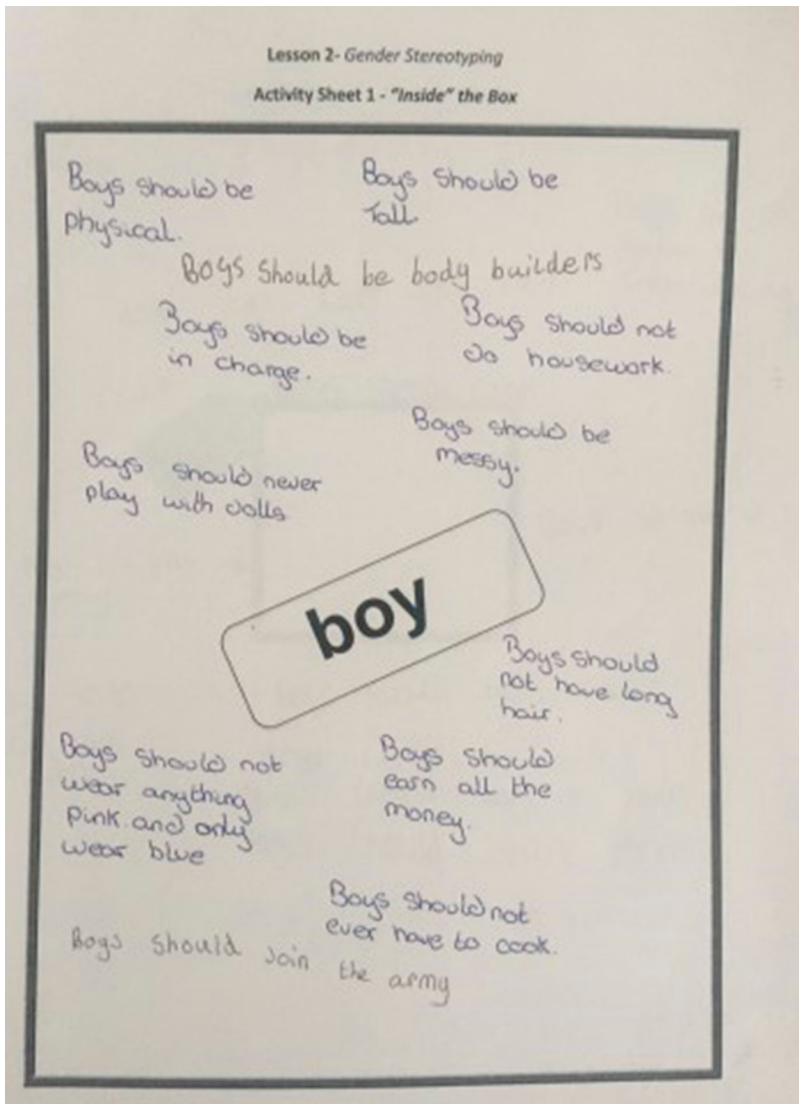 Lesson 2- Gender Stereotyping
Activity Sheet 1 - "Inside" the Box
Boys should be
physical.
Boys should be
Tall.
BOYS should be body builders
Boys should be
in charge.
Boys should not
do housework.
Boys should be
messy.
Boys should never
play with dolls
boy
Boys should
not have long
hair.
Boys should not
wear anything
pink and only
wear blue
Boys should
earn all the
money.
Boys should not
ever have to cook.
Boys should join the army